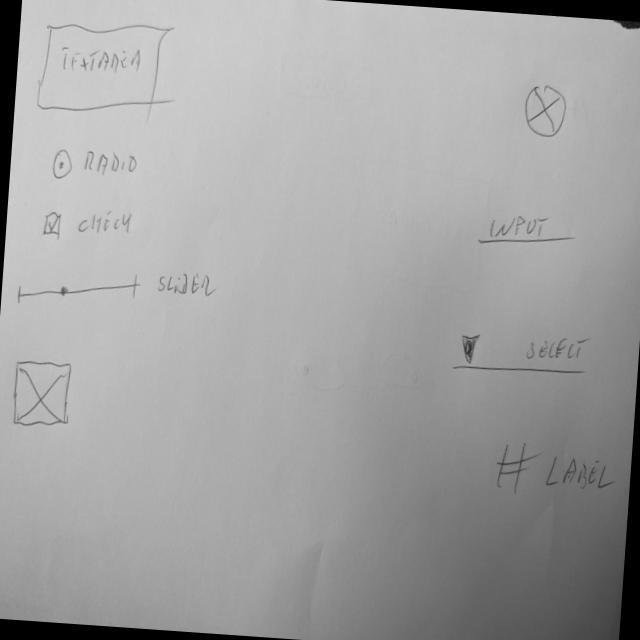 TEXTAREA
RADIO
CHECK
SLIDER
INPUT
SELECT
# LABEL